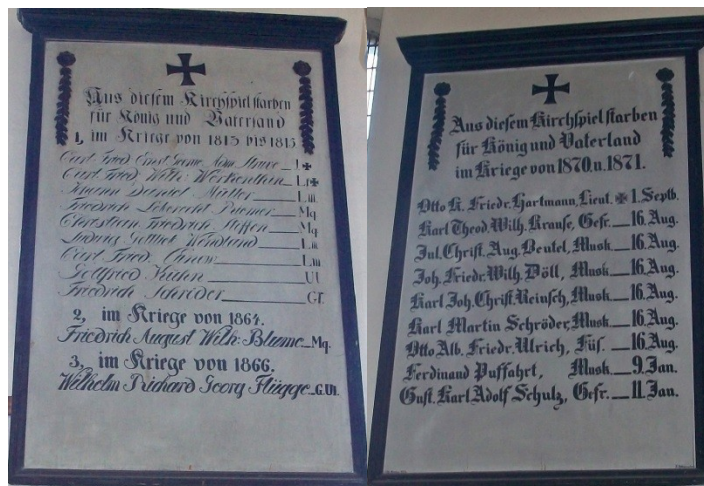 Aus diesem Kirchspiel starben
für König und Vaterland
1, im Kriege von 1813 bis 1815
Carl Fried. Ernst Adm. L.
Carl Fried. Wilh: Werkenthin L.
Daniel Müller L.
Friedrich Leberecht Mq.
Christian Friedrich Steffen Mq.
Ludwig Gottlieb Wendland L.
Carl Fried. L.
Gottfried Kühn Ul
Friedrich Schröder Gr.
2, im Kriege von 1864.
Friedrich August Wilh: Blume Mq.
3, im Kriege von 1866.
Wilhelm Richard Georg Flügge G.Ul.
Aus diesem Kirchspiel starben
für König und Vaterland
im Kriege von 1870.u.1871.
Otto K. Friedr. Hartmann, Lieut. ✠ 1. Septb.
Karl Theod. Wilh. Krause, Gefr. 16. Aug.
Jul. Christ. Aug. Beutel, Musk 16. Aug.
Joh. Friedr. Wilh. Döll, Musk 16. Aug.
Karl Joh. Christ. Reinsch, Musk 16. Aug.
Karl Martin Schröder, Musk 16. Aug.
Otto Alb. Friedr. Ulrich, Füs. 16. Aug.
Ferdinand Puffahrt, Musk 9. Jan.
Gust. Karl Adolf Schulz, Gefr. 11. Jan.